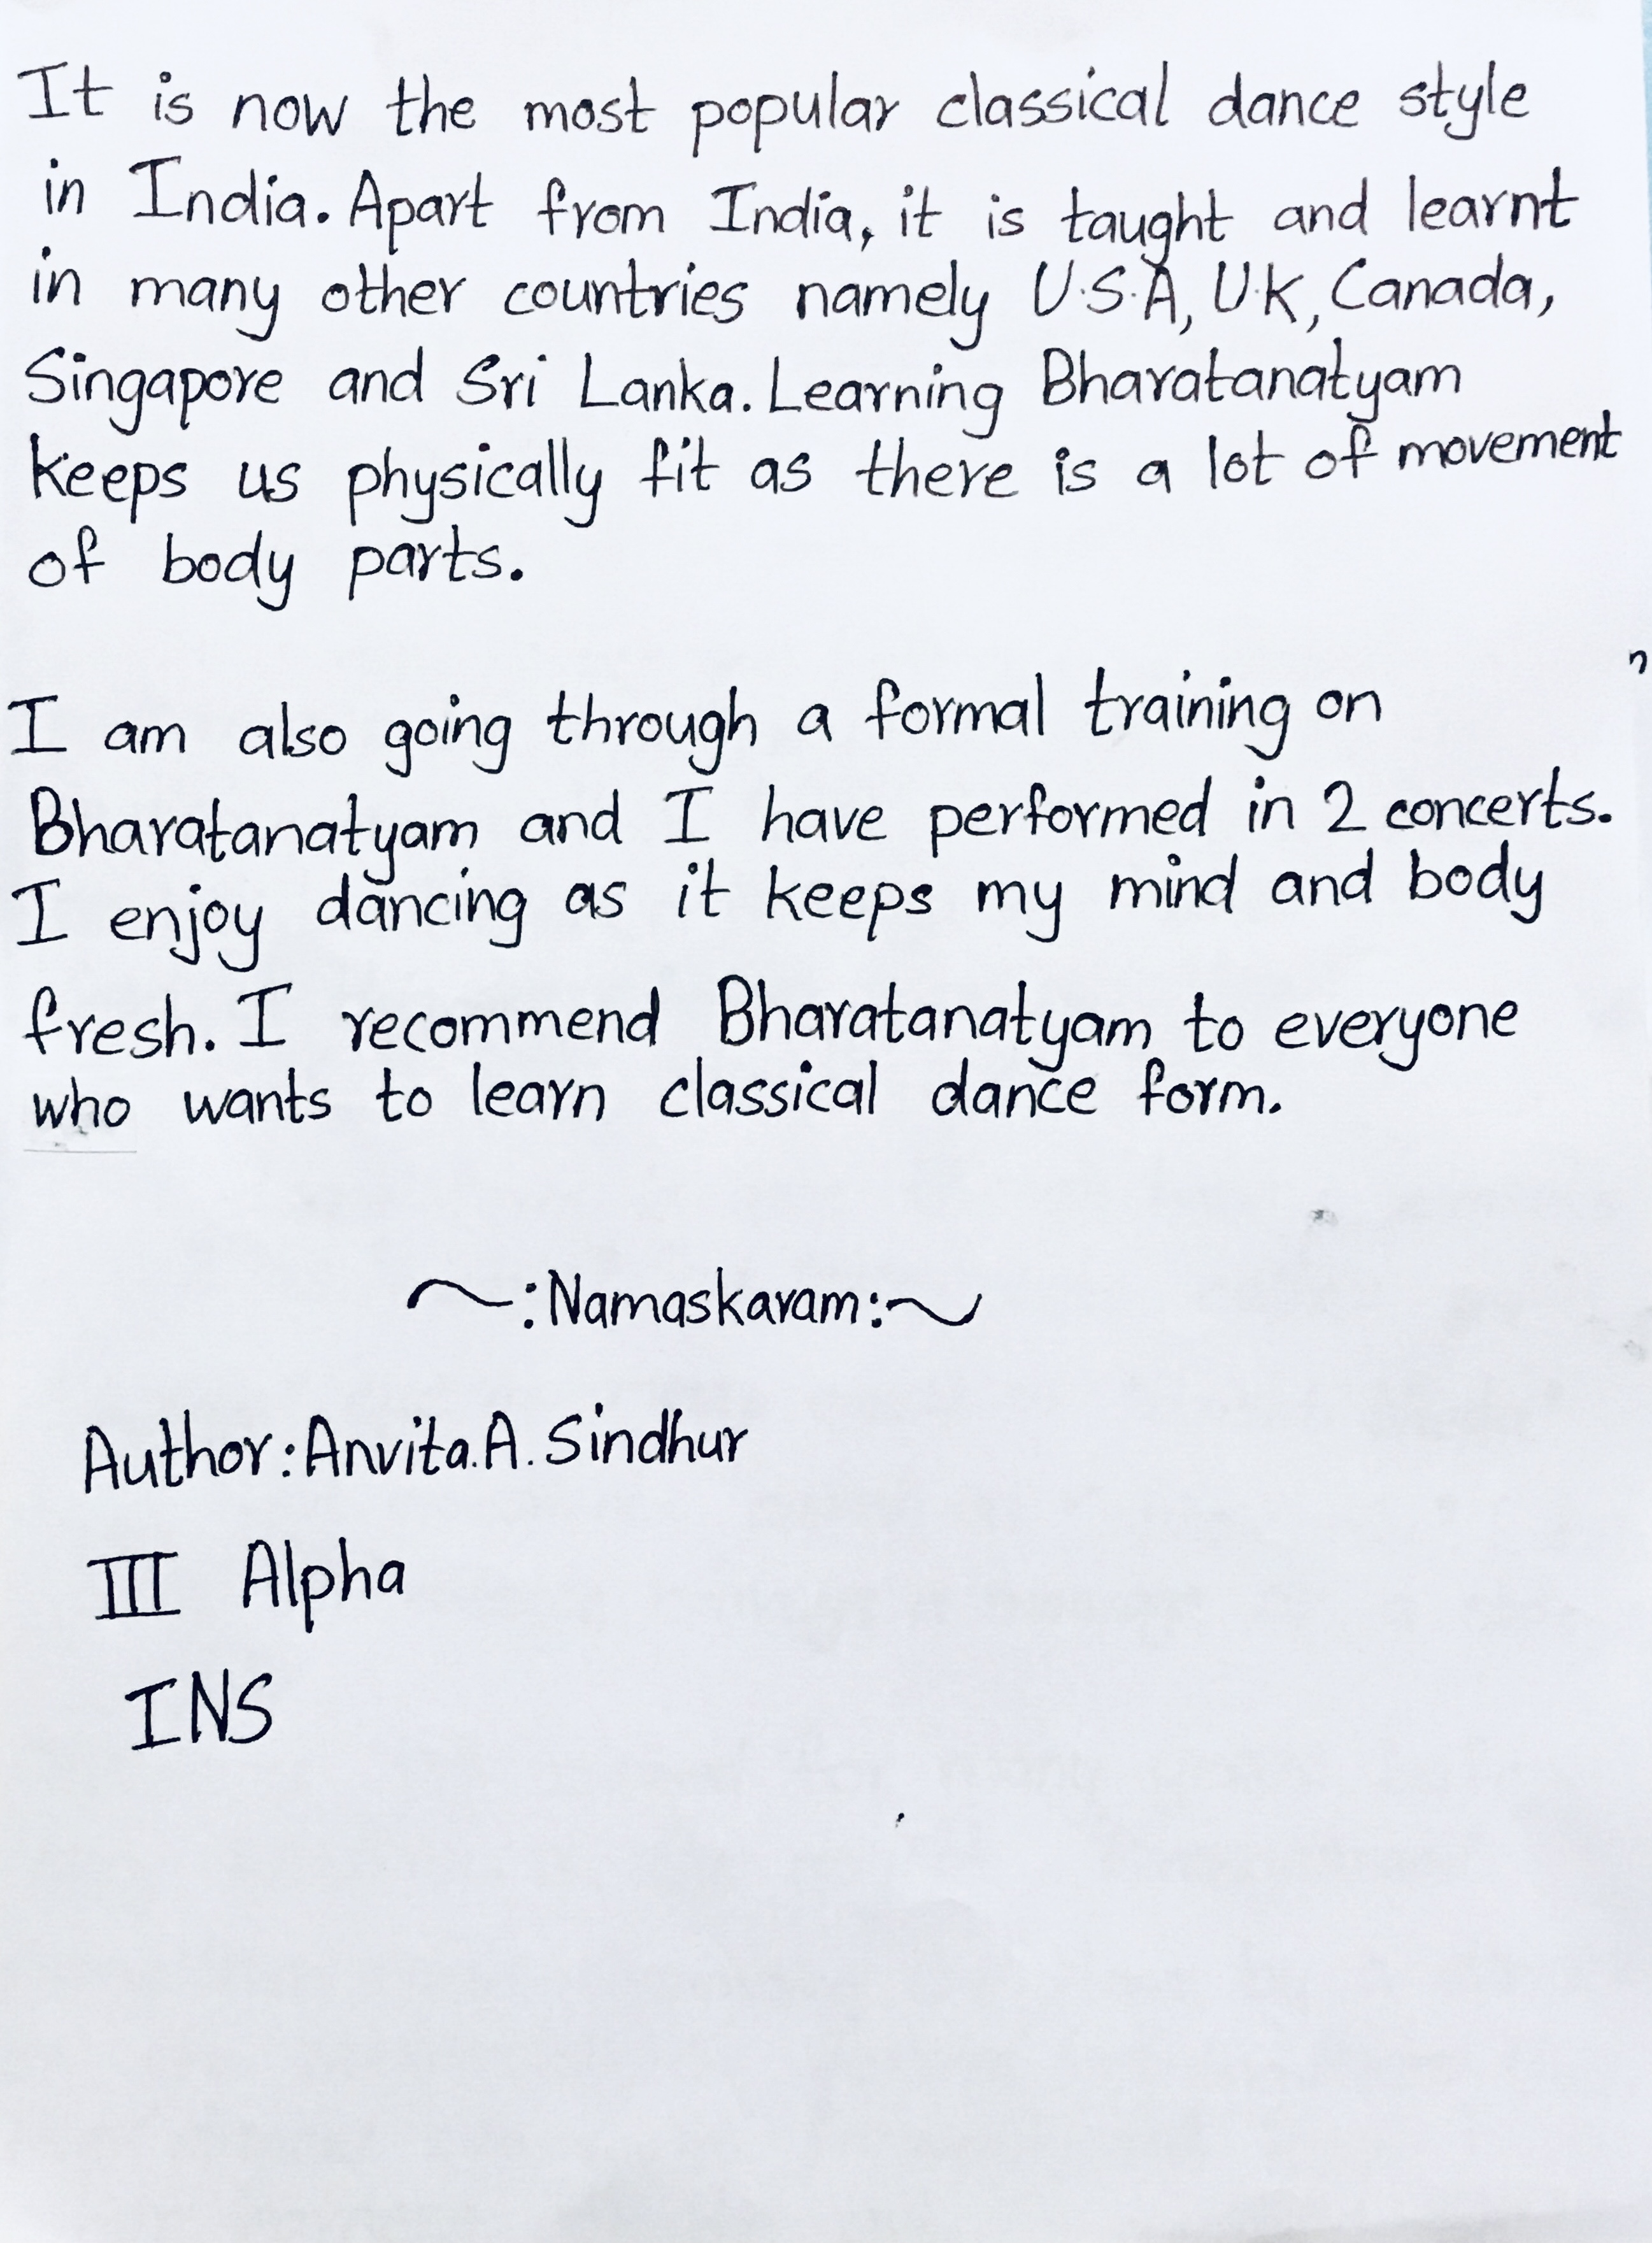 It is now the most popular classical dance style
in India. Apart from India, it is taught and learnt
in many other countries namely U.S.A, U.K, Canada,
Singapore and Sri Lanka. Learning Bharatanatyam
keeps us physically fit as there is a lot of movement
of body parts.
I am also going through a formal training on
Bharatanatyam and I have performed in 2 concerts.
I enjoy dancing as it keeps my mind and body
fresh. I recommend Bharatanatyam to everyone
who wants to learn classical dance form.
~:Namaskaram:~
Author: Anvita.A. Sindhur
III Alpha
INS